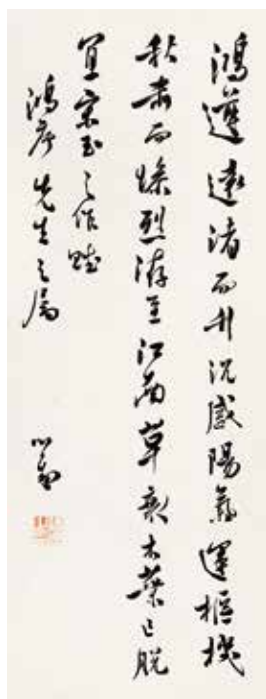 鴻遵遠渚而升沉感陽氣運樞機
秋而烈游至江南草木葉已脫
宜宋玉之作賦
鴻先生之屬
心畬